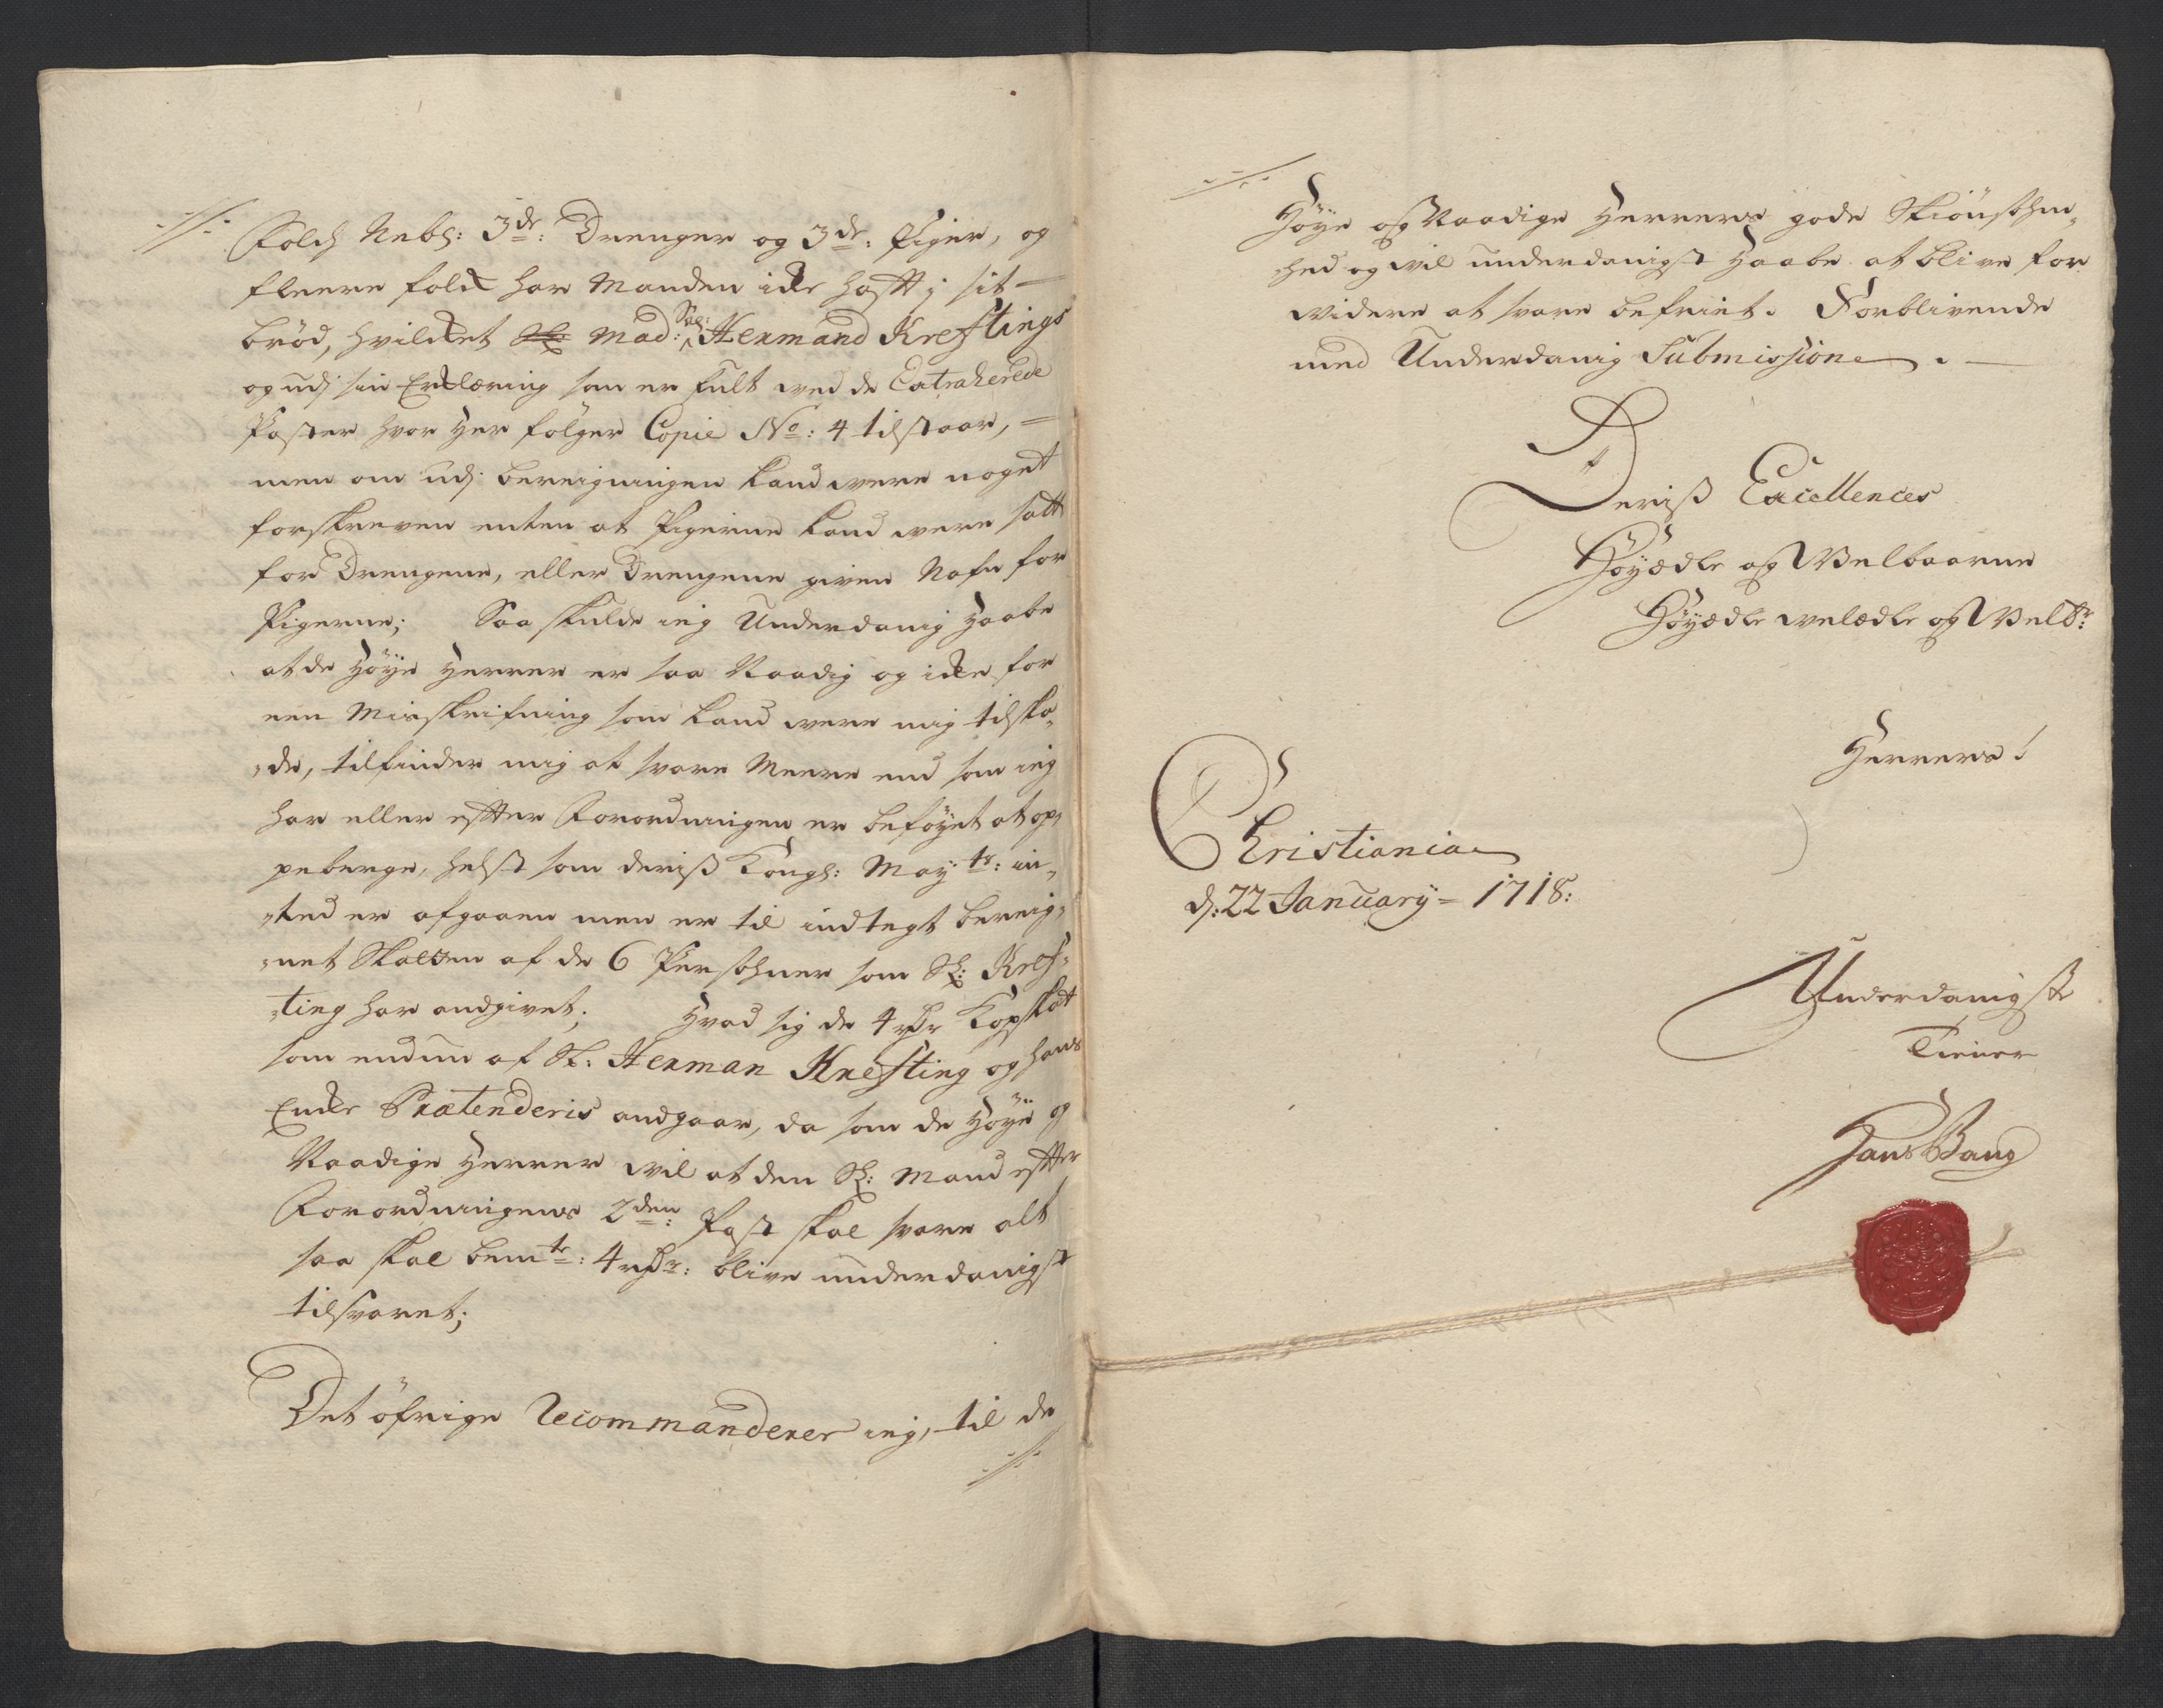 Folch Nebl: 3de: Drenger og 3de: Piger, og
fleere folck har Manden icke hafft i sit
brød, hvilcket Mad: Sal: Hermand Kreftings
og udi sin Erclæring som er fult ved de Extraherede
Poster hvor Her følger Copie No: 4 tilstaar,
men om udj bereigningen kand were noget
forskreven enten at Pigerne kand were satt
for Drengene, eller Drengene given Nafn for
Pigerne; Saa skulde ieg Underdanig Haabe
at de Høye Herrer er saa Naadig og icke for
een Misskrifning som kand were mig tilska-
-de, tilfinder mig at svare Meere end som ieg
har eller effter Forordningen er beføyet at op-
peberge, helst som deriss Kongl: May:ts: in-
-ted er afgaaen men er til indtegt bereig-
-net Skatten af de 6 Persohner som Sl: Kref-
-ting har andgivet; Hvad sig de 4 rdr Kopskat
som endnu af Sl: Herman Krefting og hans
Encke Prætenderis andgaar, da som de Høye og
Naadige Herrer wil at den Sl: Mand effter
Forordningens 2den: Post skal svare alt
saa skal bemte: 4 rdr: blive underdanigst
tilsvaret;
Det øfrige Recommanderer ieg, til de
Høye og Naadige Herrers gode Skiønsohm-
-hed og wil underdanigst Haabe at blive for
widere at svare befriet. Forblivende
med Underdanig Submission.
Deriss Excellences
Høyædle og Velbaarne
Høyædle welædle og Velbr:
Herrers!
Christiania
d: 22 January = 1718:
Underdanigste
Tiener
Hans Bang